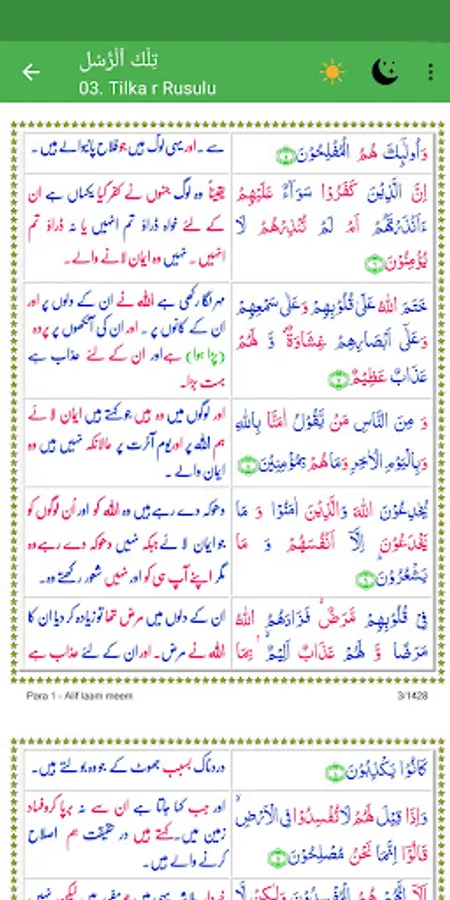 تِلْكَ ٱلْرُّسُل
03. Tilka r Rusulu
وَاُولٰٓئِكَ هُمُ الْمُفْلِحُوْنَ
سے ۔اور یہی لوگ ہیں جو فلاح پانیوالے ہیں ۔
اِنَّ الَّذِيْنَ كَفَرُوْا سَوَآءٌ عَلَيْهِمْ
ءَاَنْذَرْتَهُمْ اَمْ لَمْ تُنْذِرْهُمْ لَا
يُؤْمِنُوْنَ
یقیناً وہ لوگ جنہوں نے کفر کیا یکساں ہے ان
کے لئے خواہ ڈراؤ تم انہیں یا نہ ڈراؤ تم
انہیں ۔ نہیں وہ ایمان لانے والے۔
خَتَمَ اللّٰهُ عَلٰى قُلُوْبِهِمْ وَعَلٰى سَمْعِهِمْ
وَعَلٰٓى اَبْصَارِهِمْ غِشَاوَةٌ وَّ لَهُمْ
عَذَابٌ عَظِيْمٌ
مہر لگا رکھی ہے اللہ نے ان کے دلوں پر اور
ان کے کانوں پر ۔ اور ان کی آنکھوں پر پردہ
(پڑا ہوا) ہے اور ان کے لئے عذاب ہے
بہت بڑا۔
وَ مِنَ النَّاسِ مَنْ يَّقُوْلُ اٰمَنَّا بِاللّٰهِ
وَبِالْيَوْمِ الْاٰخِرِ وَمَا هُمْ بِمُؤْمِنِيْنَ
اور لوگوں میں وہ ہیں جو کہتے ہیں ایمان لائے
ہم اللہ پر اور یوم آخرت پر حالانکہ نہیں ہیں وہ
ایمان والے ۔
يُخٰدِعُوْنَ اللّٰهَ وَالَّذِيْنَ اٰمَنُوْا وَ مَا
يَخْدَعُوْنَ اِلَّآ اَنْفُسَهُمْ وَ مَا
يَشْعُرُوْنَ
دھوکہ دے رہے ہیں وہ اللہ کو اور اُن لوگوں کو
جو ایمان لائے جبکہ نہیں دھوکہ دے رہے وہ
مگر اپنے آپ ہی کو اور نہیں شعور رکھتے وہ۔
فِيْ قُلُوْبِهِمْ مَّرَضٌ فَزَادَهُمُ اللّٰهُ
مَرَضًا وَّ لَهُمْ عَذَابٌ اَلِيْمٌۢ بِمَا
ان کے دلوں میں مرض تھا تو زیادہ کر دیا ان کا
اللہ نے مرض۔ اور ان کے لئے عذاب ہے
Para 1 - Alif laam meem
3/1428
كَانُوْا يَكْذِبُوْنَ
دردناک بسبب جھوٹ کے جو وہ بولتے ہیں۔
وَاِذَا قِيْلَ لَهُمْ لَا تُفْسِدُوْا فِى الْاَرْضِ
قَالُوْٓا اِنَّمَا نَحْنُ مُصْلِحُوْنَ
اور جب کہا جاتا ہے ان سے نہ برپا کرو فساد
زمین میں۔کہتے ہیں در حقیقت ہم اصلاح
کرنے والے ہیں۔
اَلَآ اِنَّهُمْ هُمُ الْمُفْسِدُوْنَ وَلٰكِنْ لَّا